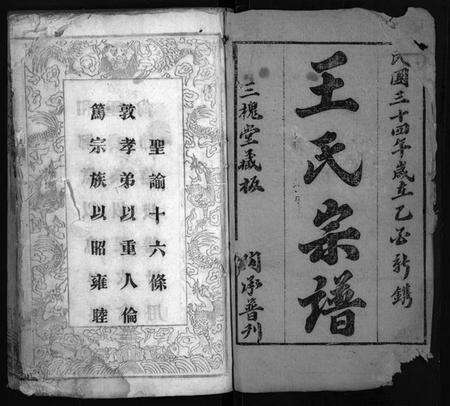 民國三十四年歲在乙酉新鐫
王氏宗譜
三槐堂藏板
承普刊
聖諭十六條
敦孝弟以重人倫
篤宗族以昭雍睦